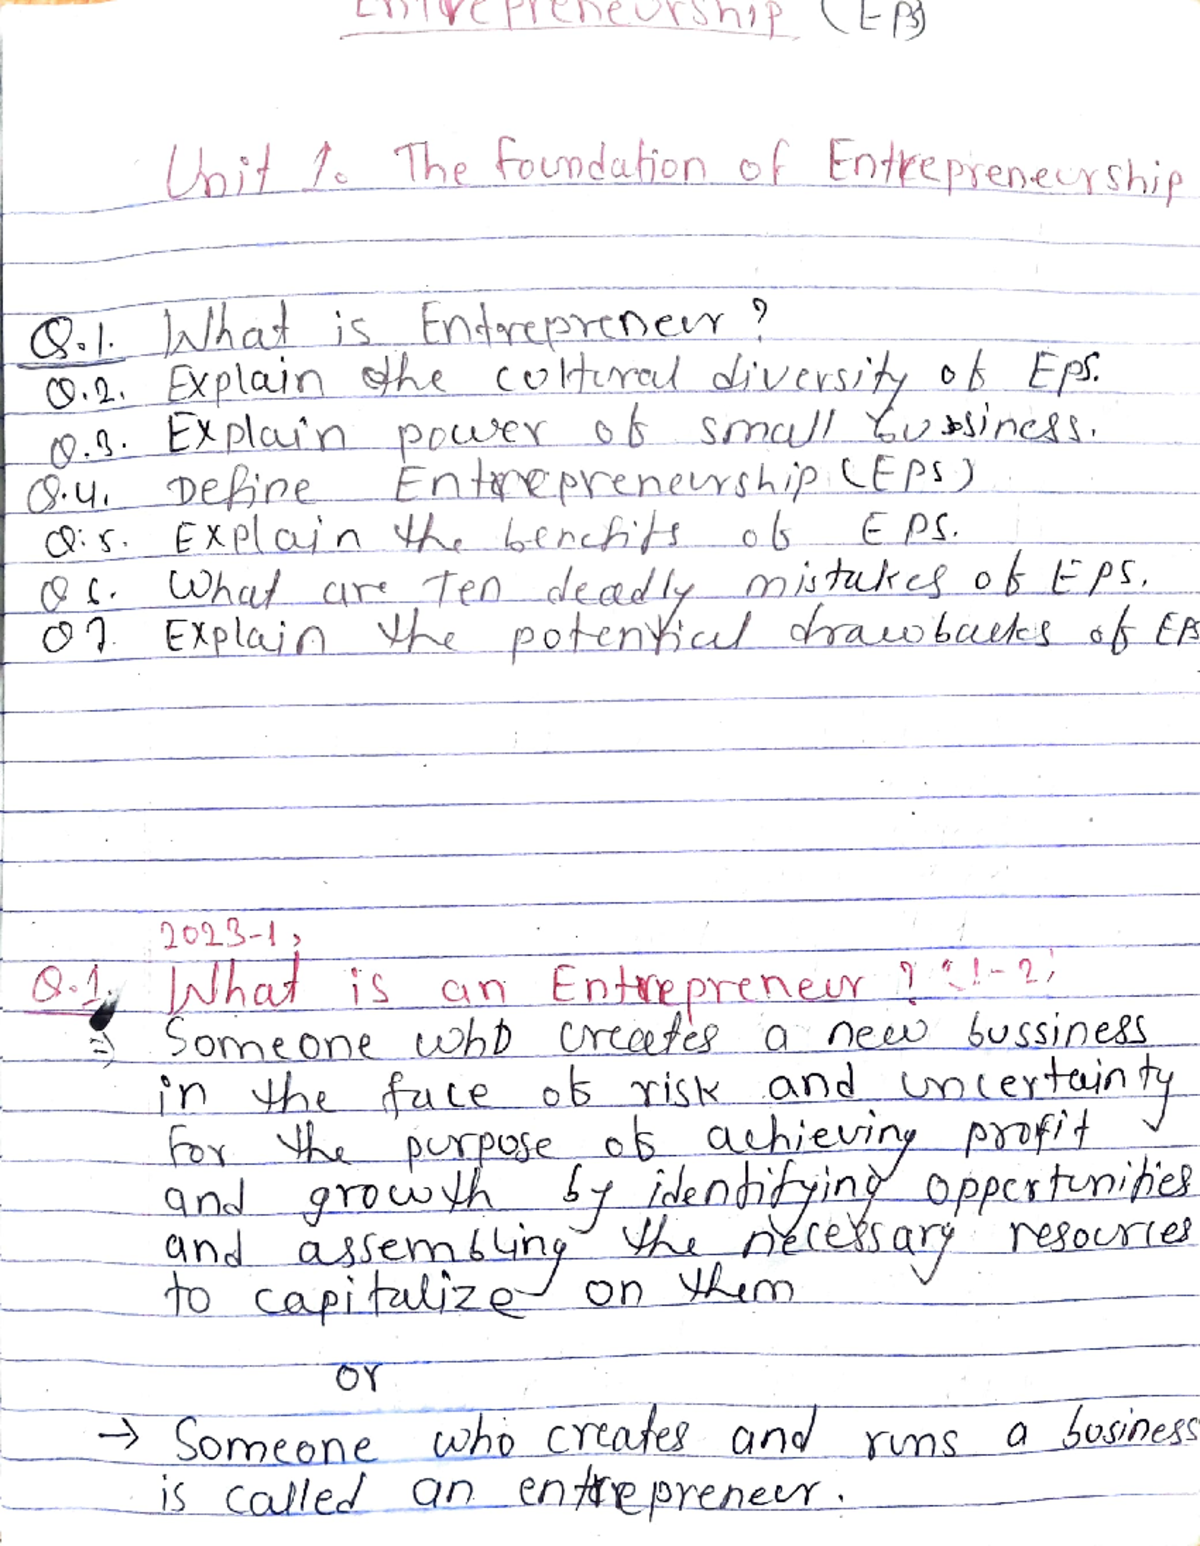 Entrepreneurship (EPS)
Unit 1. The foundation of Entrepreneurship
Q.1. What is Entrepreneur ?
Q.2. Explain the cultural diversity of EPS.
Q.3. Explain power of small bussiness.
Q.4. Define Entrepreneurship (EPS)
Q.5. Explain the benefits of EPS.
Q 6. What are Ten deadly mistakes of EPS.
Q 7. Explain the potential drawbacks of EPS
2023-1,
Q.1. What is an Entrepreneur ? (1-2)
⇒ Someone who creates a new bussiness
in the face of risk and uncertainty
For the purpose of achieving profit
and growth by identifying opportunities
and assembling the necessary resources
to capitalize on them
or
→ Someone who creates and runs a business
is called an entrepreneur.